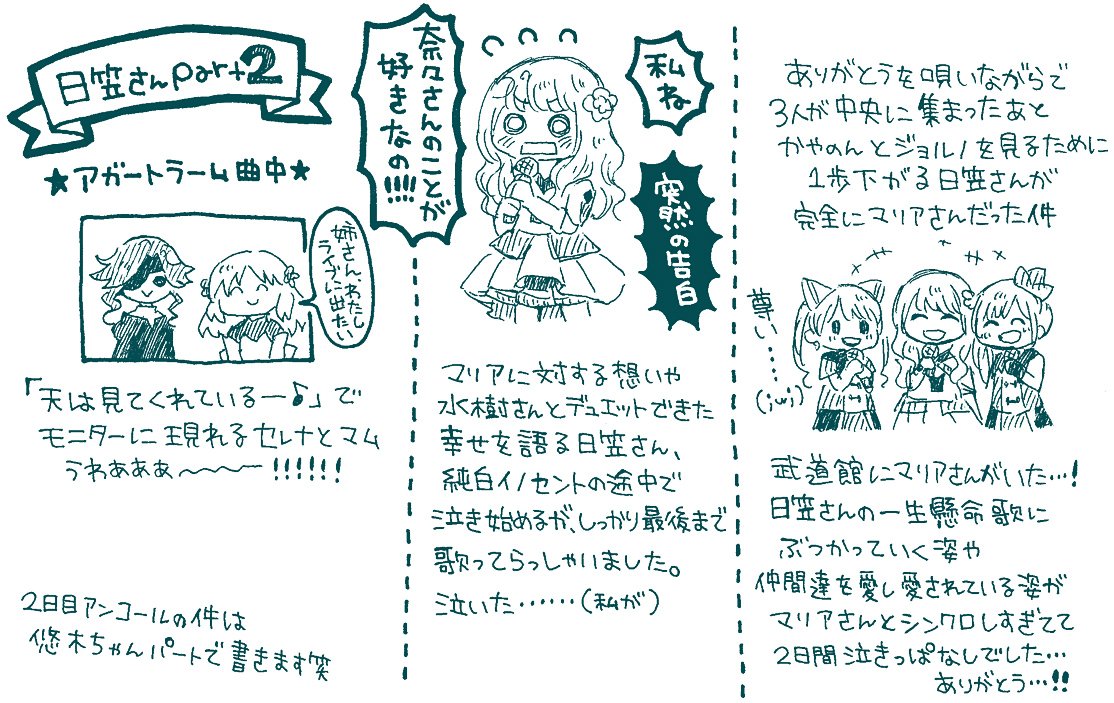 日笠さんPart2
★アガートラーム曲中★
姉さん、わたし
ライブに出たい
「天は見てくれているー♪」で
モニターに現れるセレナとマム
うわぁぁぁ〜〜〜ー!!!!!!
2日目アンコールの件は
悠木ちゃんパートで書きます笑
私ね
奈々さんのことが
好きなの!!!!
突然の告白
マリアに対する想いや
水樹さんとデュエットできた
幸せを語る日笠さん、
純白イノセントの途中で
泣き始めるが、しっかり最後まで
歌ってらっしゃいました。
泣いた……(私が)
ありがとうを唄いながらで
3人が中央に集まったあと
かやのんとジョルノを見るために
1歩下がる日笠さんが
完全にマリアさんだった件
尊い……(;w;)
武道館にマリアさんがいた…!
日笠さんの一生懸命歌に
ぶつかっていく姿や
仲間達を愛し愛されている姿が
マリアさんとシンクロしすぎてて
2日間泣きっぱなしでした…
ありがとう…!!